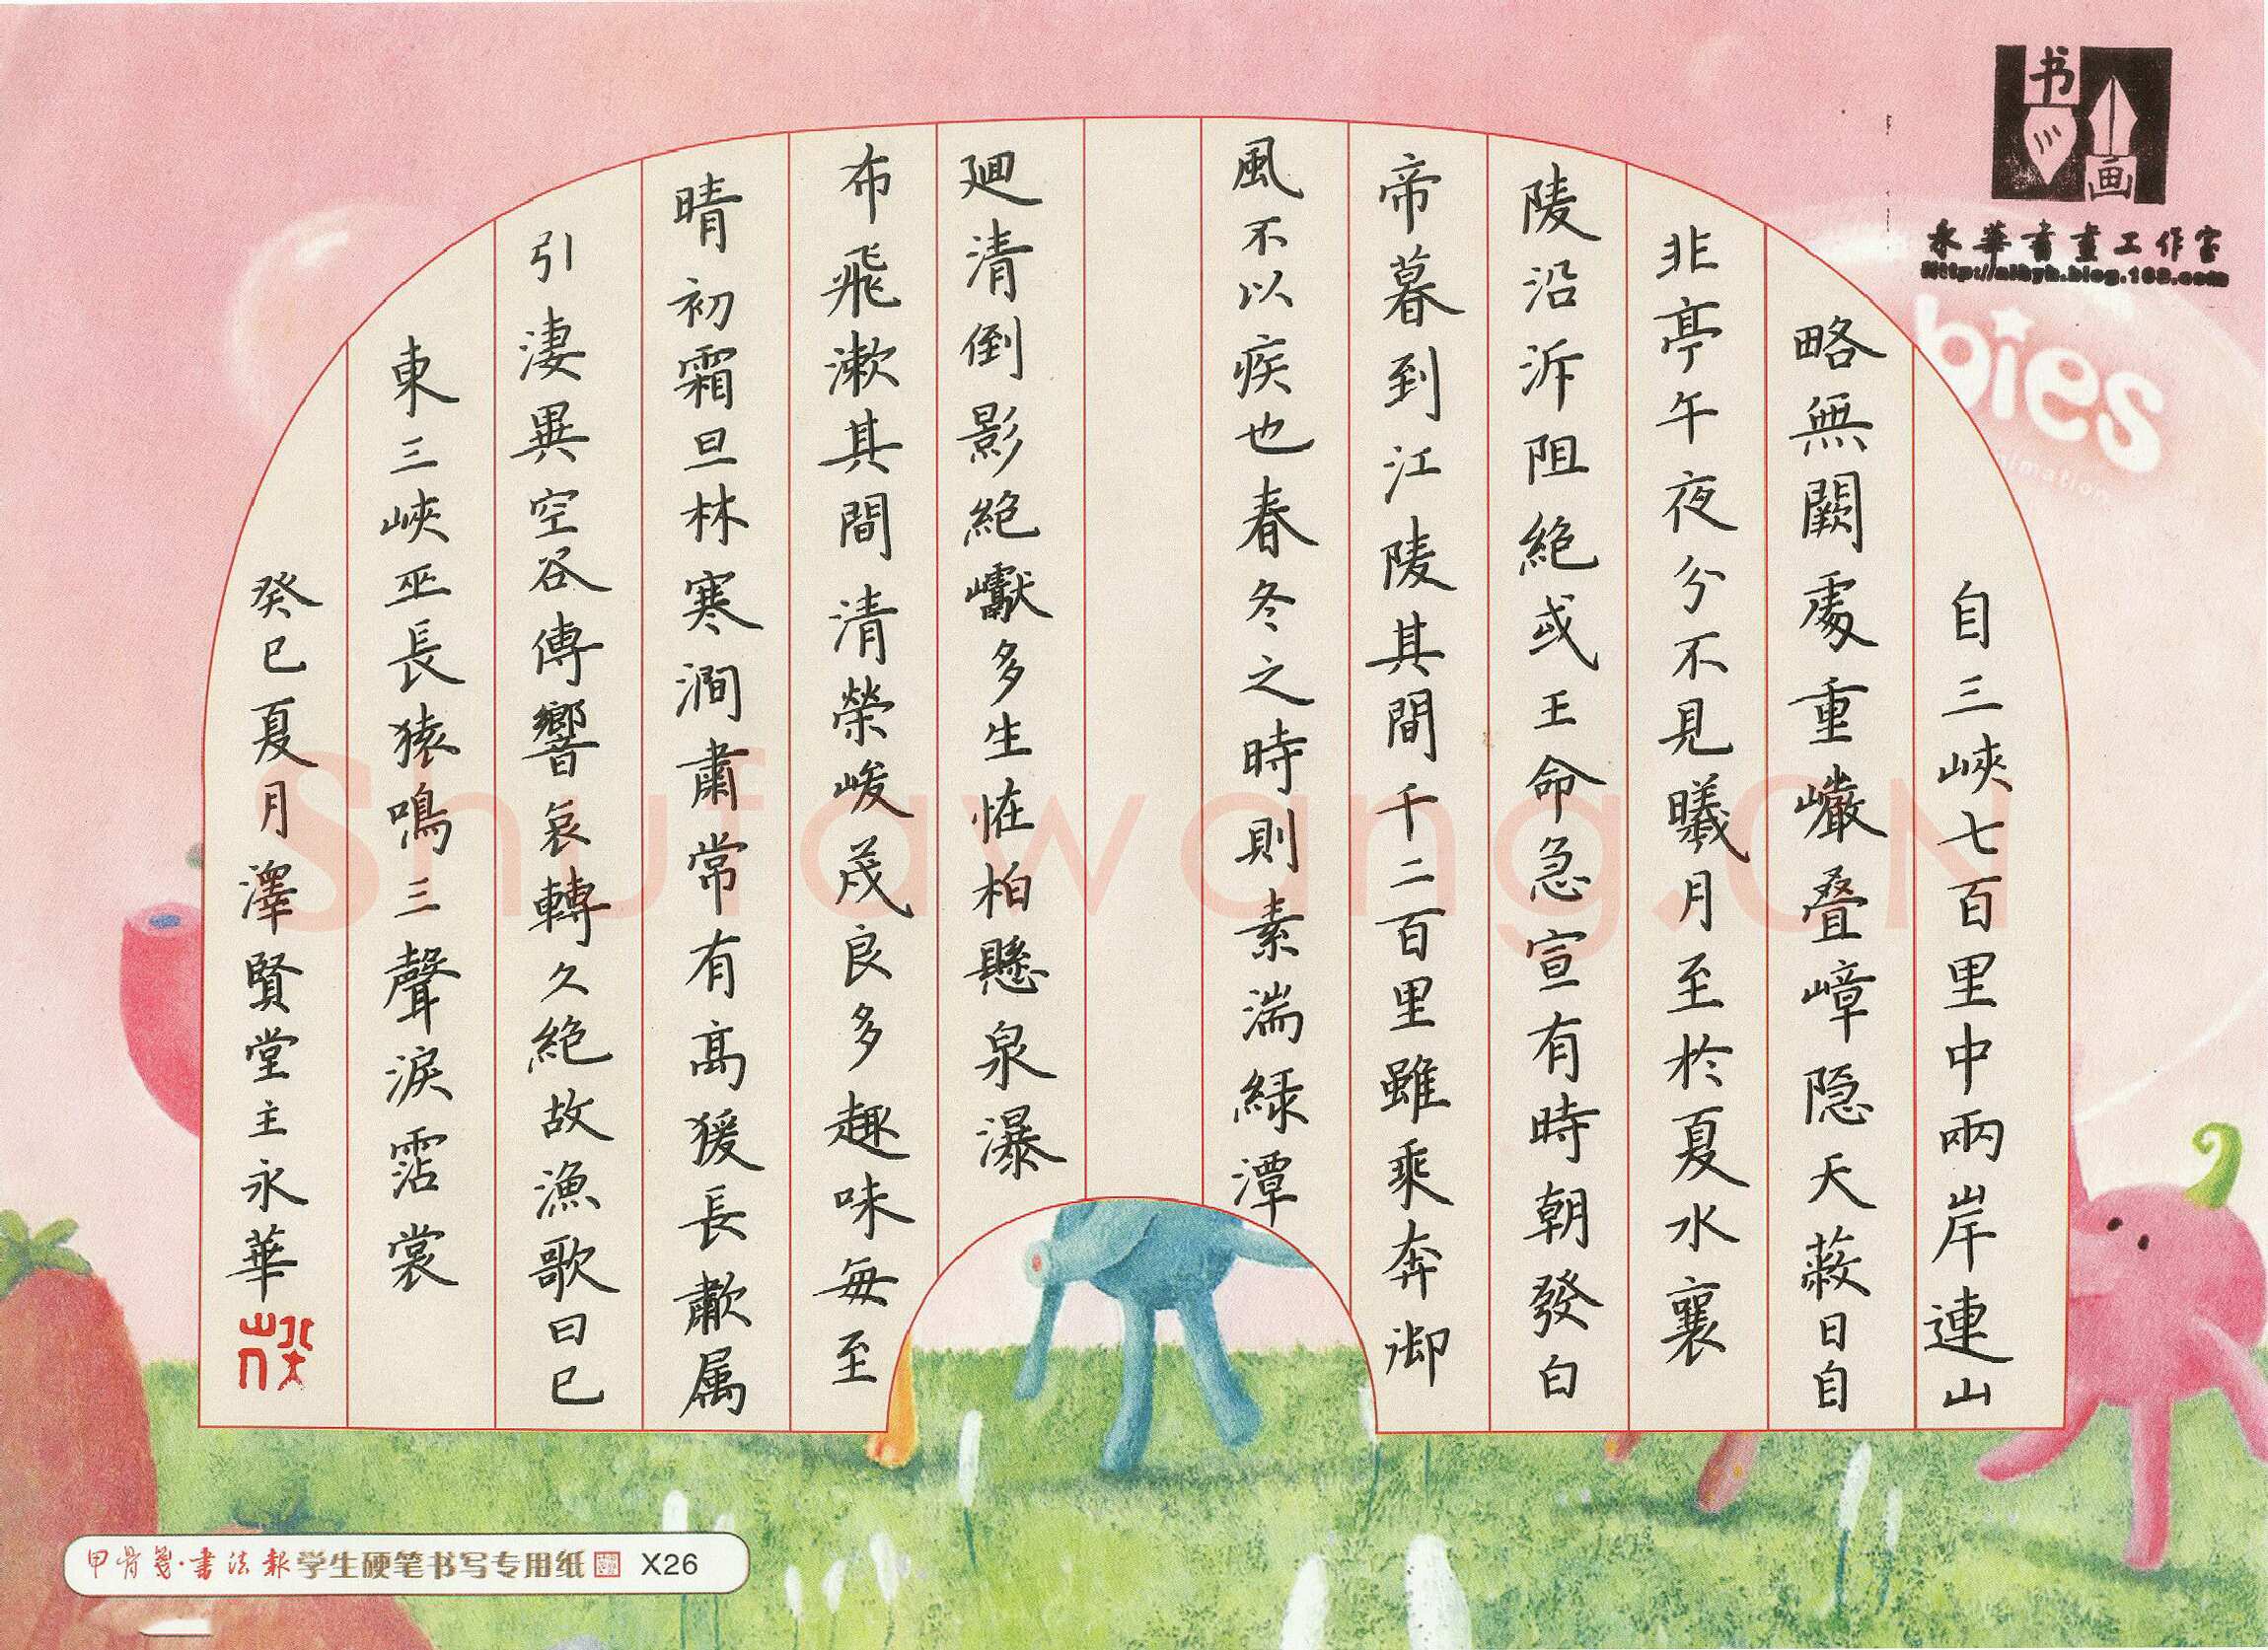 自三峽七百里中兩岸連山
略無闕處重巘叠嶂隐天蔽日自
非亭午夜分不見曦月至於夏水襄
陵沿泝阻絕或王命急宣有時朝發白
帝暮到江陵其間千二百里雖乘奔御
風不以疾也春冬之時則素湍綠潭
廻清倒影絕巘多生恠柏懸泉瀑
布飛漱其間清榮峻茂良多趣味每至
晴初霜旦林寒澗肅常有高猨長歗属
引淒異空谷傳響哀轉久絕故漁歌曰巴
東三峽巫長猿鳴三聲淚霑裳
癸巳夏月澤賢堂主永華
书画
永華書畫工作室
Http://nlhyh.blog.163.com
bies
Shufawang.CN
甲骨箋·書法報学生硬笔书写专用纸 X26